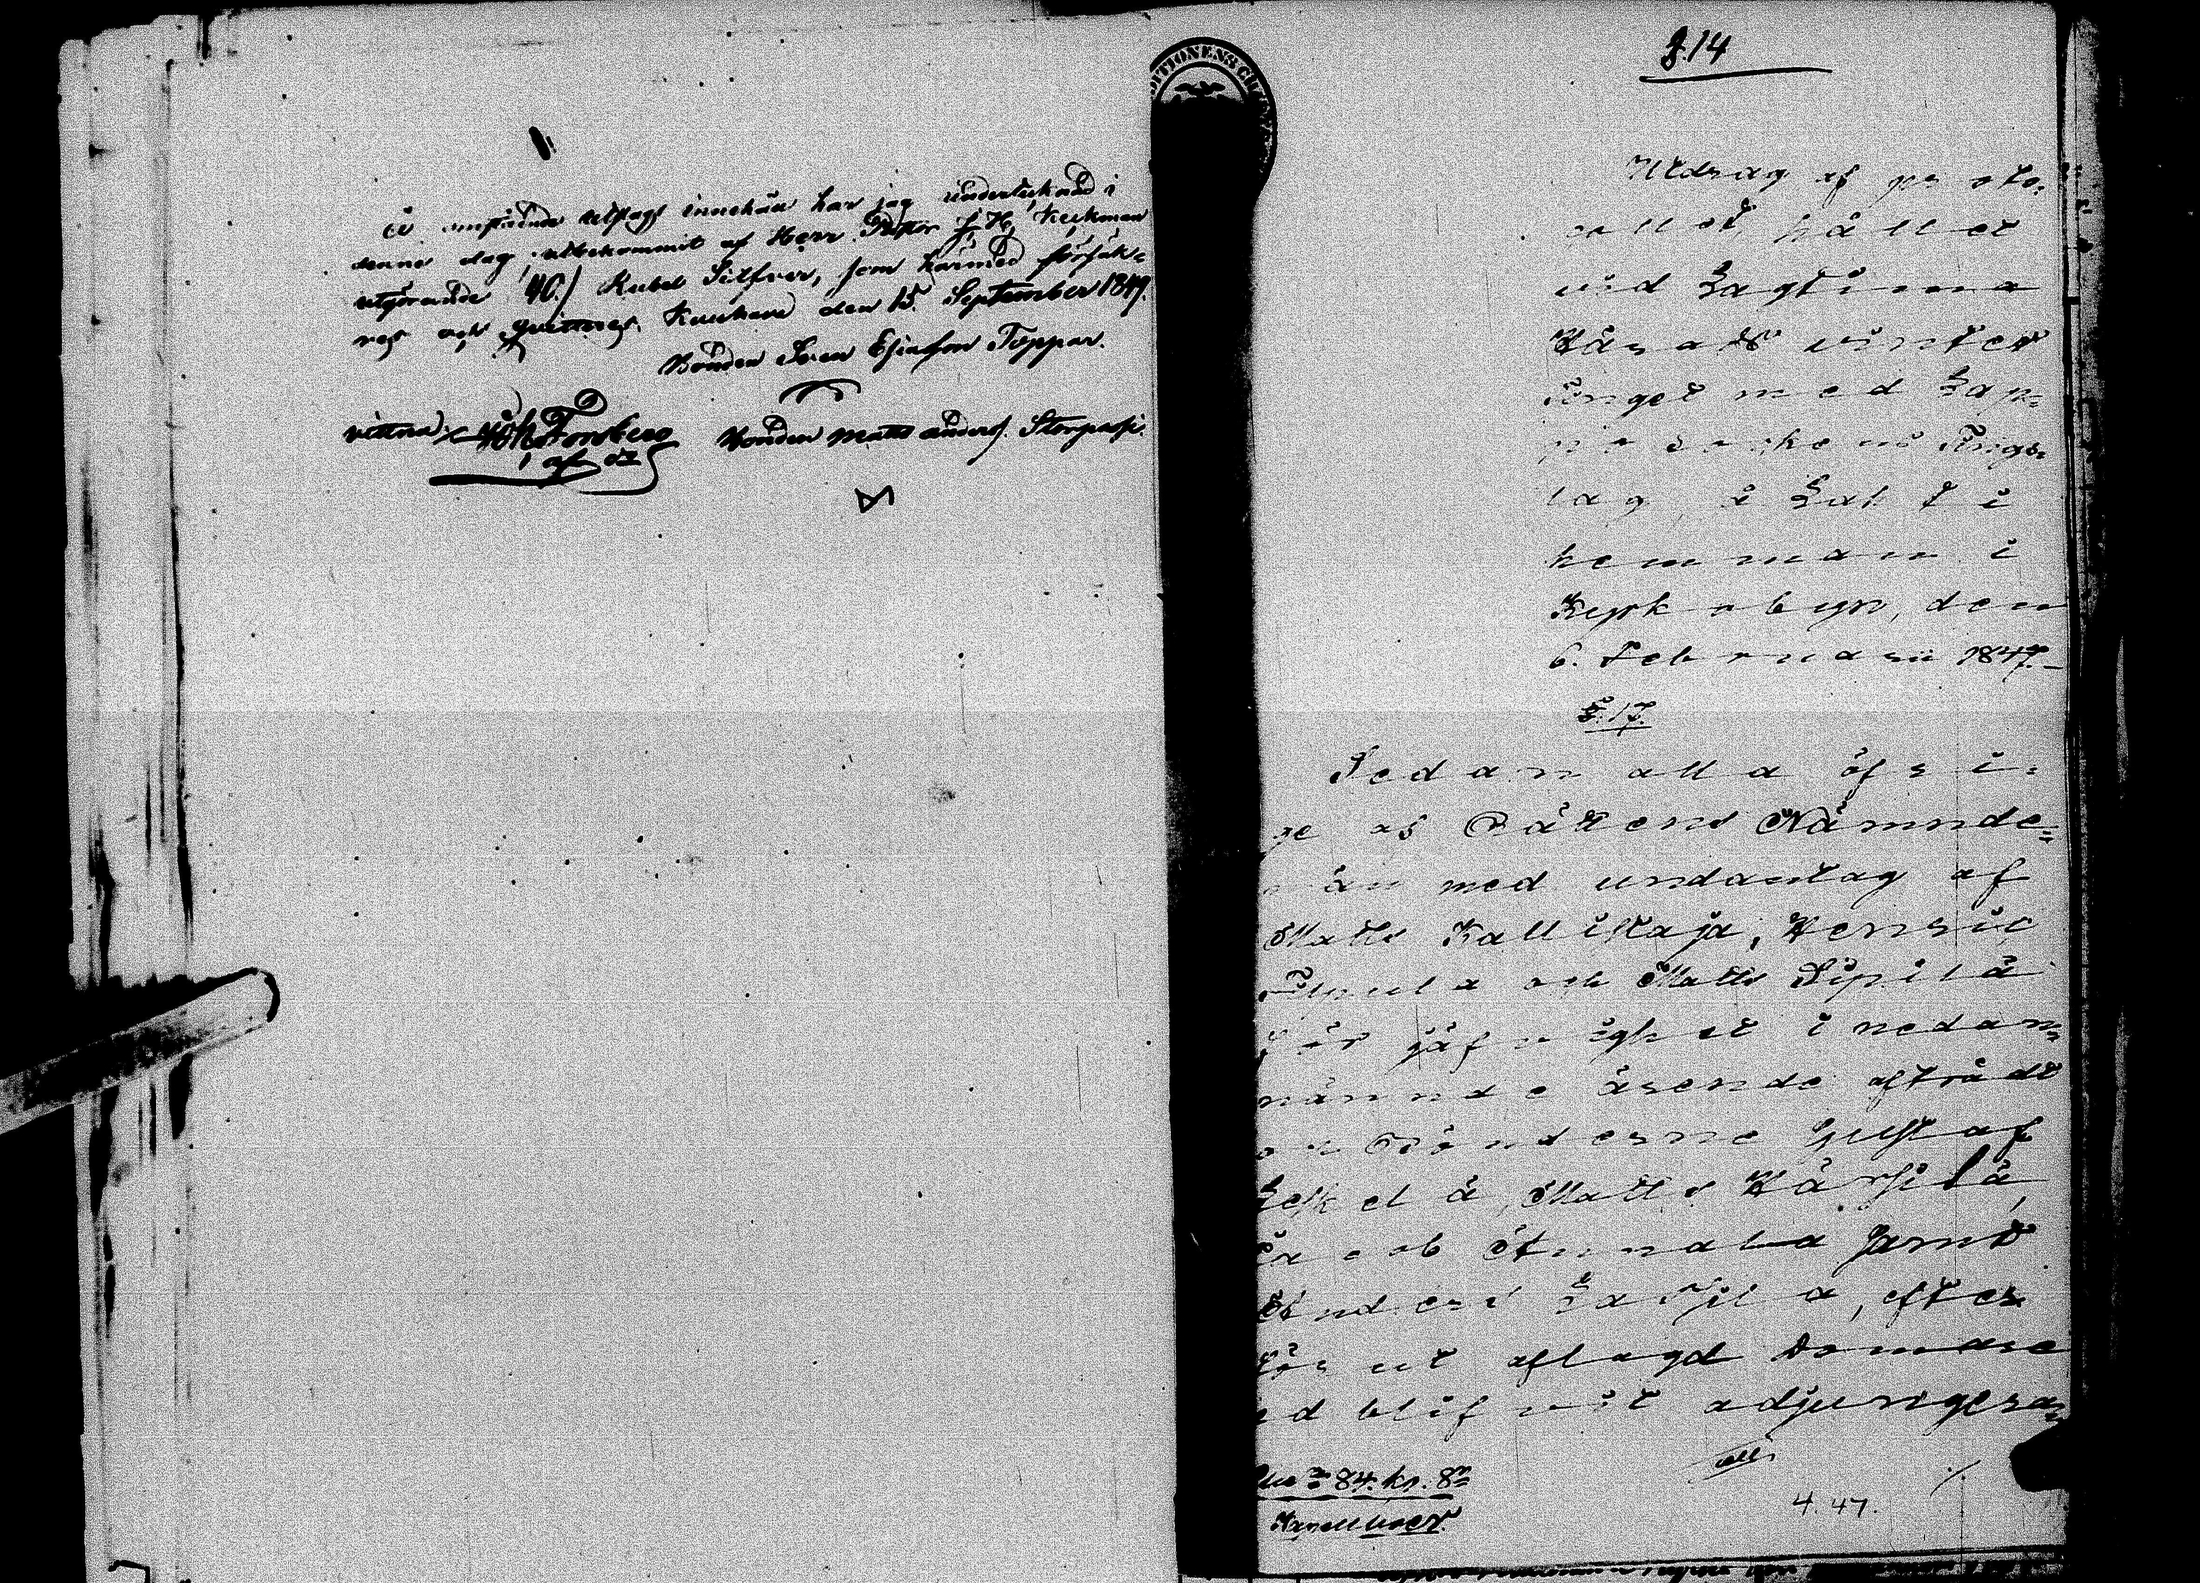 å omstående utslags innehån har jag undertecknad i
denne dag utbekommit af Herr Pastor J. H. Keckman
utgörande 40./ Rubel Silfver, som härmed försäk-
ras och qvitteras. Kauhava den 15. September 1849.
Bonden Sven Esiasson Toppar.
vittna: Joh Forsberg Bonden Matts Anderss. Storpass.
§.14
Utdrag af proto-
collet, hållet
vid Lagtima
Härads vinter
Tinget med Lap-
po sockens Tings-
lag å Lahti
hemman i
Kyrkobyn, den
6. Februarii 1847.
§. 17.
Sedan alla öfri-
ge af Rättens Nämnde-
män med undantag af
Matts Kallistaja, Henric
och Matts Sipilä
för jäfvighet i nedan-
nämnde ärende afträdt
och Bönderne Gustaf
Matts Härsilä,
Jacob samt
Anders efter
förut aflagd Domare
ed blifvit adjungera-
84. kop. 8
4. 47.